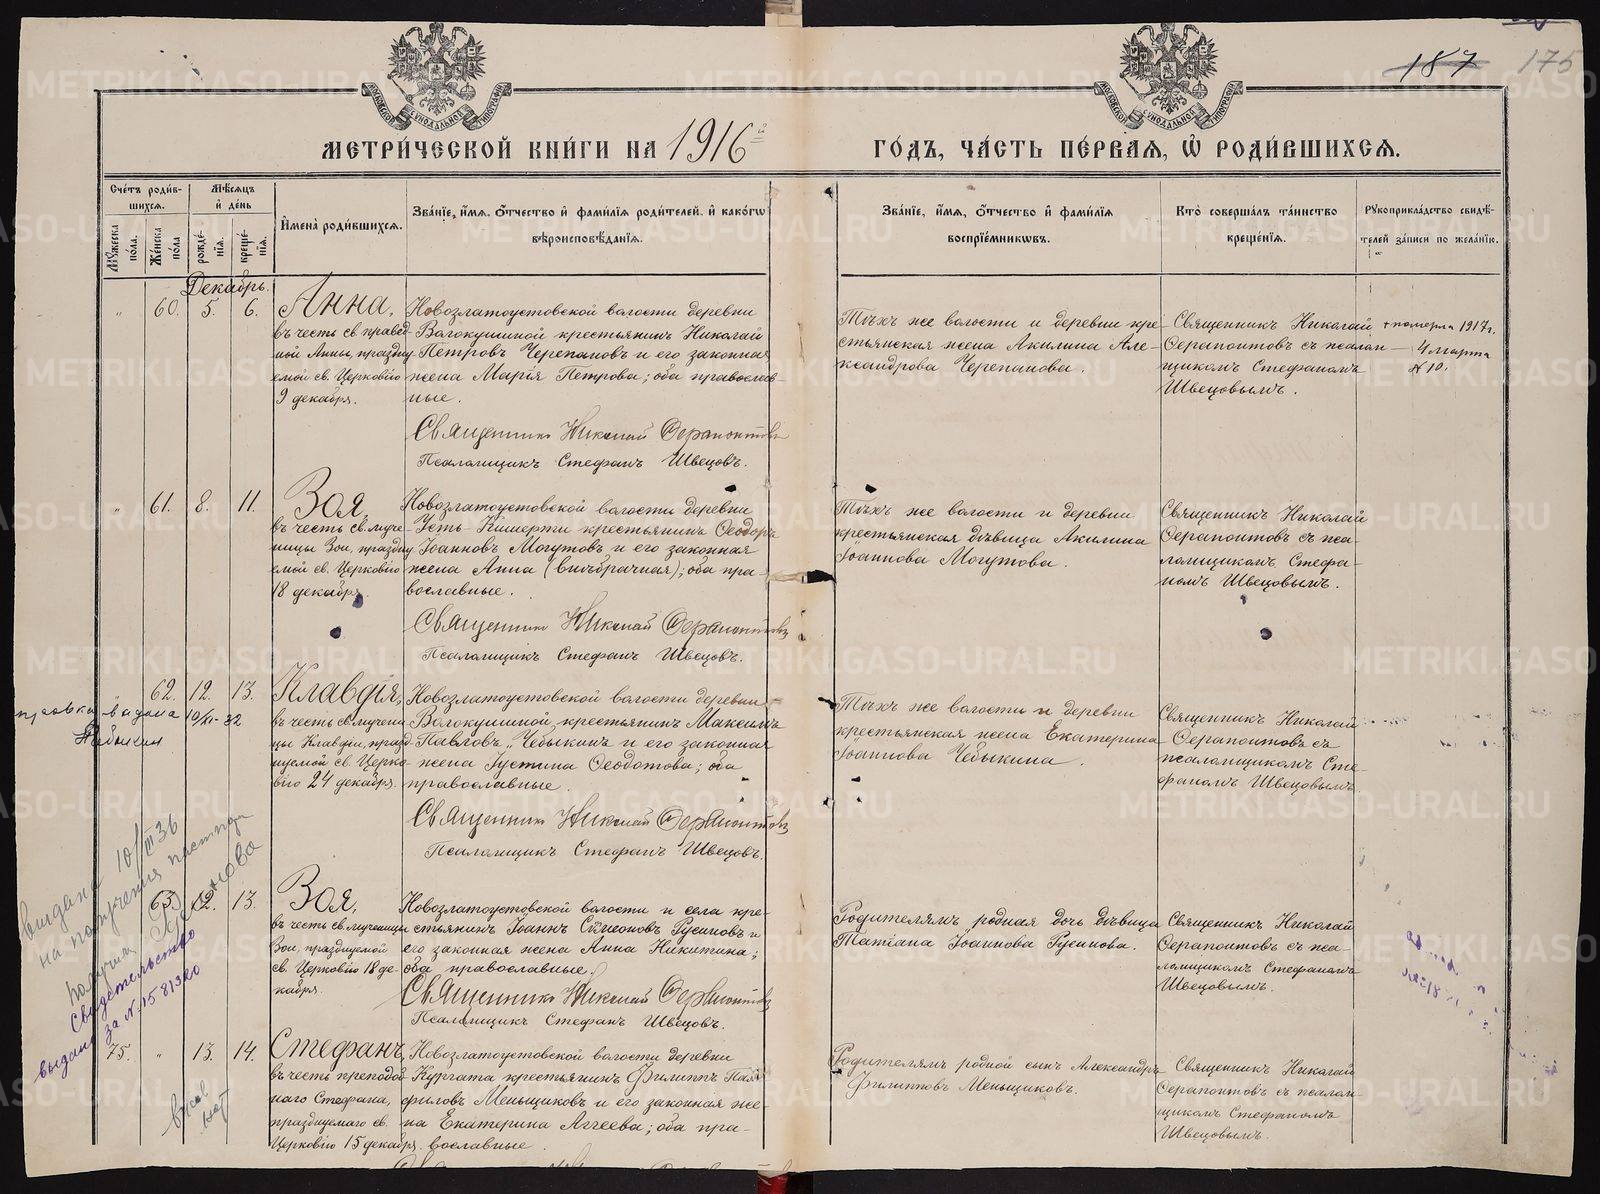 187 175
МЕТРИ́ЧЕСКОЙ КНИ́ГИ НА 1916й ГО́ДЪ, ЧА́СТЬ ПЕ́РВАЯ, Ѡ҆ РОДИ́ВШИХСЯ.
Сче́тъ роди́в-
шихся.
Мꙋжеска пола.
Же́нска пола
Мѣ́сяцъ
и҆ де́нь
рожде́-
нїѧ.
креще́-
нїѧ.
И҆мена̀ роди́вшихся.
Зва́нїе, и҆́мѧ, ѻ҆́тчество и҆ фами́лїѧ роди́телей, и҆ како́гѡ
вѣроисповѣ́данїѧ.
Зва́нїе, и҆́мѧ, ѻ҆́тчество и҆ фами́лїѧ
воспрїе́мниковъ.
Кто̀ соверша́лъ та́инство
креще́нїѧ.
Рꙋкоприкла́дство свидѣ́-
телей за́писи по жела́нїю.
Декабрь.
" 60. 5. 6.
Анна,
въ честь св. правед-
ной Анны, праздну-
емой св. Церковію
9 декабря.
Новозлатоустовской волости деревни
Волокушиной крестьянинъ Николай
Петровъ Черепановъ и его законная
жена Марія Петрова; оба православ
ные.
Священникъ Николай Ѳерапонтовъ
Псаломщикъ Стефанъ Швецовъ.
Тѣхъ же волости и деревни кре-
стьянская жена Акилина Але-
ксандрова Черепанова.
Священникъ Николай
Ѳерапонтовъ съ псалом-
щикомъ Стефаномъ
Швецовымъ.
+ померла 1917 г.
4 марта
№ 10.
" 61. 8. 11.
Зоя,
въ честь св. муче-
ницы Зои, праздну
емой св. Церковію
18 декабря.
Новозлатоустовской волости деревни
Усть-Кишерти крестьянинъ Ѳеодоръ
Іоанновъ Могутовъ и его законная
жена Анна (внѣбрачная); оба пра-
вославные.
Священникъ Николай Ѳерапонтовъ
Псаломщикъ Стефанъ Швецовъ.
Тѣхъ же волости и деревни
крестьянская дѣвица Акилина
Іоаннова Могутова.
Священникъ Николай
Ѳерапонтовъ съ пса-
ломщикомъ Стефа-
номъ Швецовымъ.
" 62. 12. 13.
выдана 10/XI-32
Клавдія,
въ честь св. мучени
цы Клавдіи, празд
нуемой св. Церко-
вію 24 декабря.
Новозлатоустовской волости деревни
Волокушиной, крестьянинъ Максимъ
Павловъ Чебыкинъ и его законная
жена Іустина Ѳеодотова; оба
православные.
Священникъ Николай Ѳерапонтовъ
Псаломщикъ Стефанъ Швецовъ.
Тѣхъ же волости и деревни
крестьянская жена Екатерина
Іоаннова Чебыкина.
Священникъ Николай
Ѳерапонтовъ съ
псаломщикомъ Сте-
фаномъ Швецовымъ.
выдана 10/III 36
на получения паспорта
получил
Свидетельство
выдано за № 1581320
63. 12. 13.
Зоя,
въ честь св. мученицы
Зои, празднуемой
св. Церковію 18 де-
кабря.
Новозлатоустовской волости и села кре-
стьянинъ Іоаннъ Симеоновъ Русиновъ и
его законная жена Анна Никитина;
оба православные.
Священникъ Николай Ѳерапонтовъ
Псаломщикъ Стефанъ Швецовъ.
Родителямъ родная дочь дѣвица
Татіана Іоаннова Русинова.
Священникъ Николай
Ѳерапонтовъ съ пса-
ломщикомъ Стефаномъ
Швецовымъ.
75. " 13. 14.
Стефанъ,
въ честь преподоб
наго Стефана,
празднуемаго св.
Церковію 15 декабря.
Новозлатоустовской волости деревни
Кургата крестьянинъ Филиппъ Пам-
филовъ Меньщиковъ и его законная же-
на Екатерина Аггеева; оба пра-
вославные.
Родителямъ родной сынъ Александръ
Филипповъ Меньщиковъ.
Священникъ Николай
Ѳерапонтовъ съ псалом-
щикомъ Стефаномъ
Швецовымъ.
METRIKI.GASO-URAL.RU